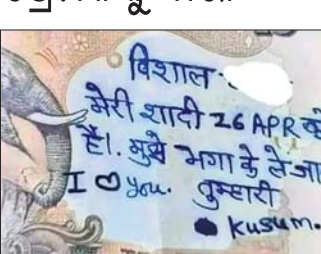 विशाल
मेरी शादी 26 APR को
है। मुझे भगा के ले जा
I ♡ you. तुम्हारी
Kusum.